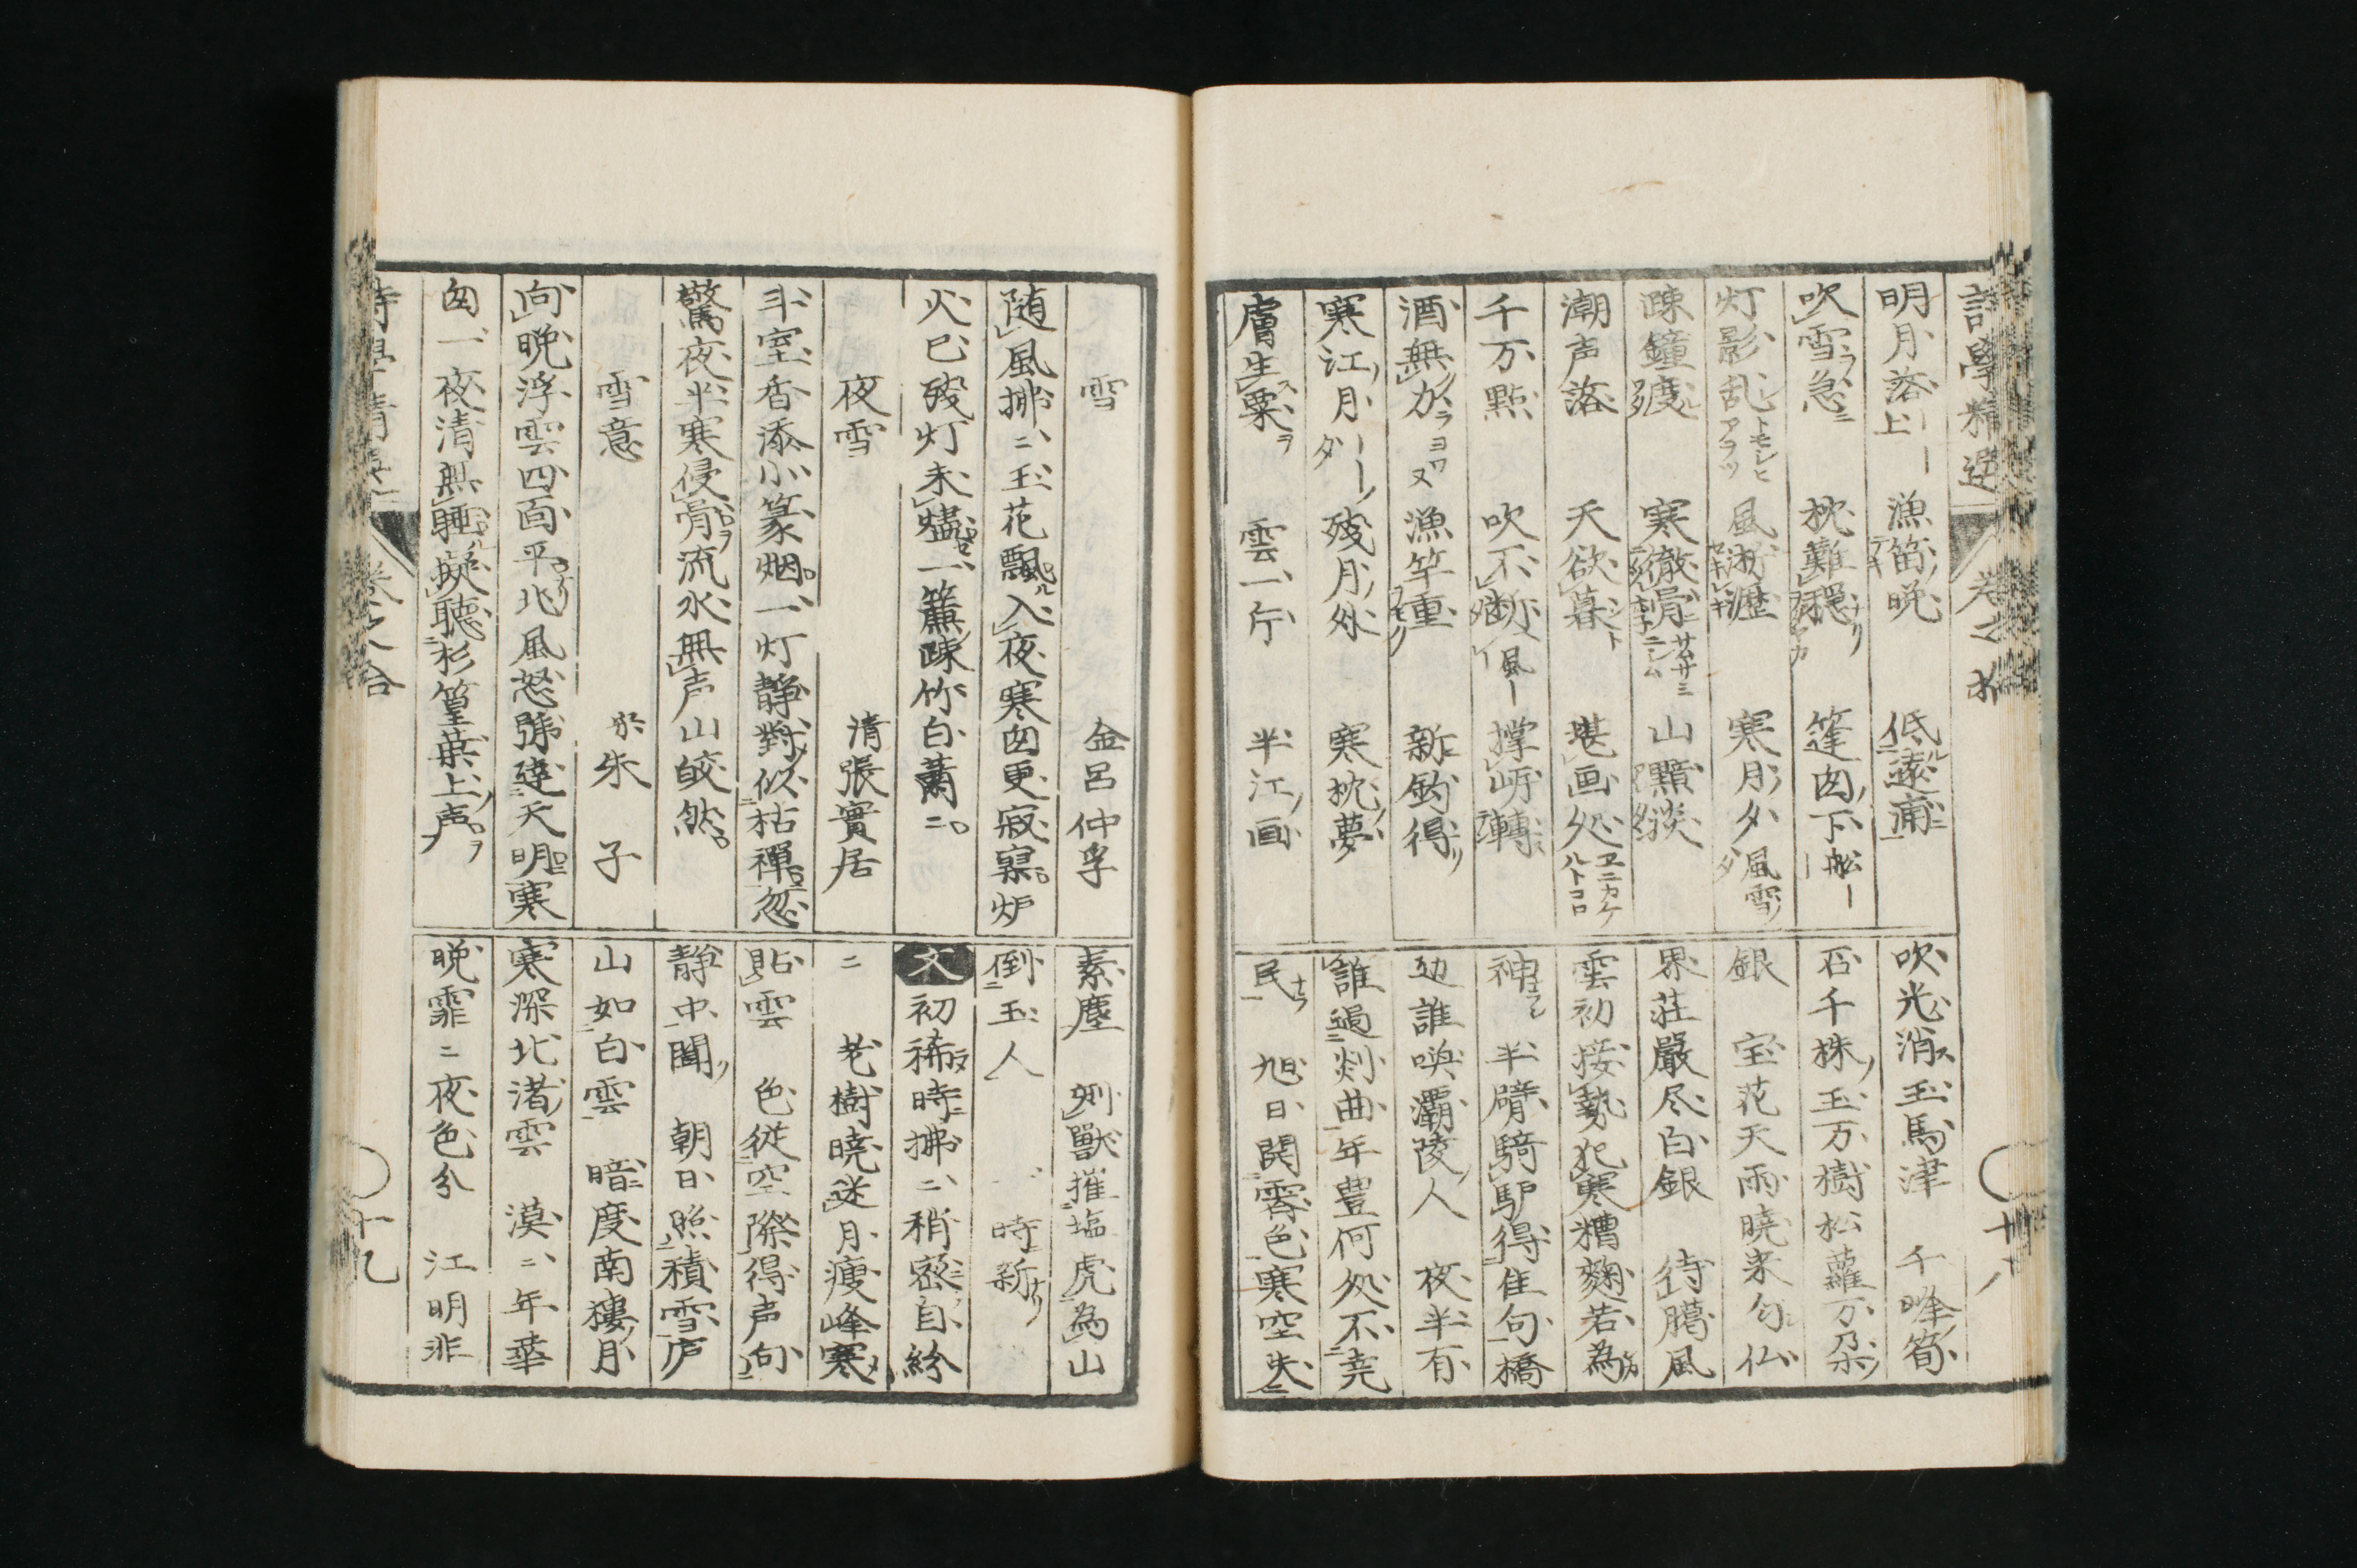 明月落上 漁笛晩 低遠浦
吹雪急 枕難穏 篷囱下
灯影乱 風淅瀝 寒月夕
踈鐘度 寒徹骨 山黯淡
潮声落 天欲暮 堪画処
千万點 吹不断 撑岈轉
酒無力 漁竿重 新釣得
寒江月 残月外 寒枕夢
膚生粟 雲一片 半江画
吹光消玉馬津 千峰筍
石千株玉万樹松蘿万朶
銀 宝花天雨暁来匀仏
界荘嚴尽白銀 待臈風
雲初接勢犯寒糟麹若為
神 半臂騎馿得隹句橋
边誰喚灞陵人 夜半有
誰過剡曲年豊何処不尭
民 旭日開霽色寒空失
雪 金呂仲孚
随風拂〻玉花飄入夜寒囱更寂寞炉
火已残灯未燼一簾踈竹白蕭〻
夜雪 清張實居
斗室香添小篆烟一灯静對似枯禅忽
驚夜半寒侵骨流水無声山皎然
雪意 宋朱子
向晩浮雲四面平北風怒號達天明寒
囱一夜清無睡擬聴杉篁葉上声
素塵 刻獣摧塩虎為山
倒玉人 時新
文 初稀時拂〻稍密自紛
〻 老樹暁迷月痩峰寒
貼雲 色従空際得声向
静中聞 朝日照積雪庐
山如白雲 暗度南楼月
寒深北渚雲 漠〻年華
晩霏〻夜色分 江明非
十九